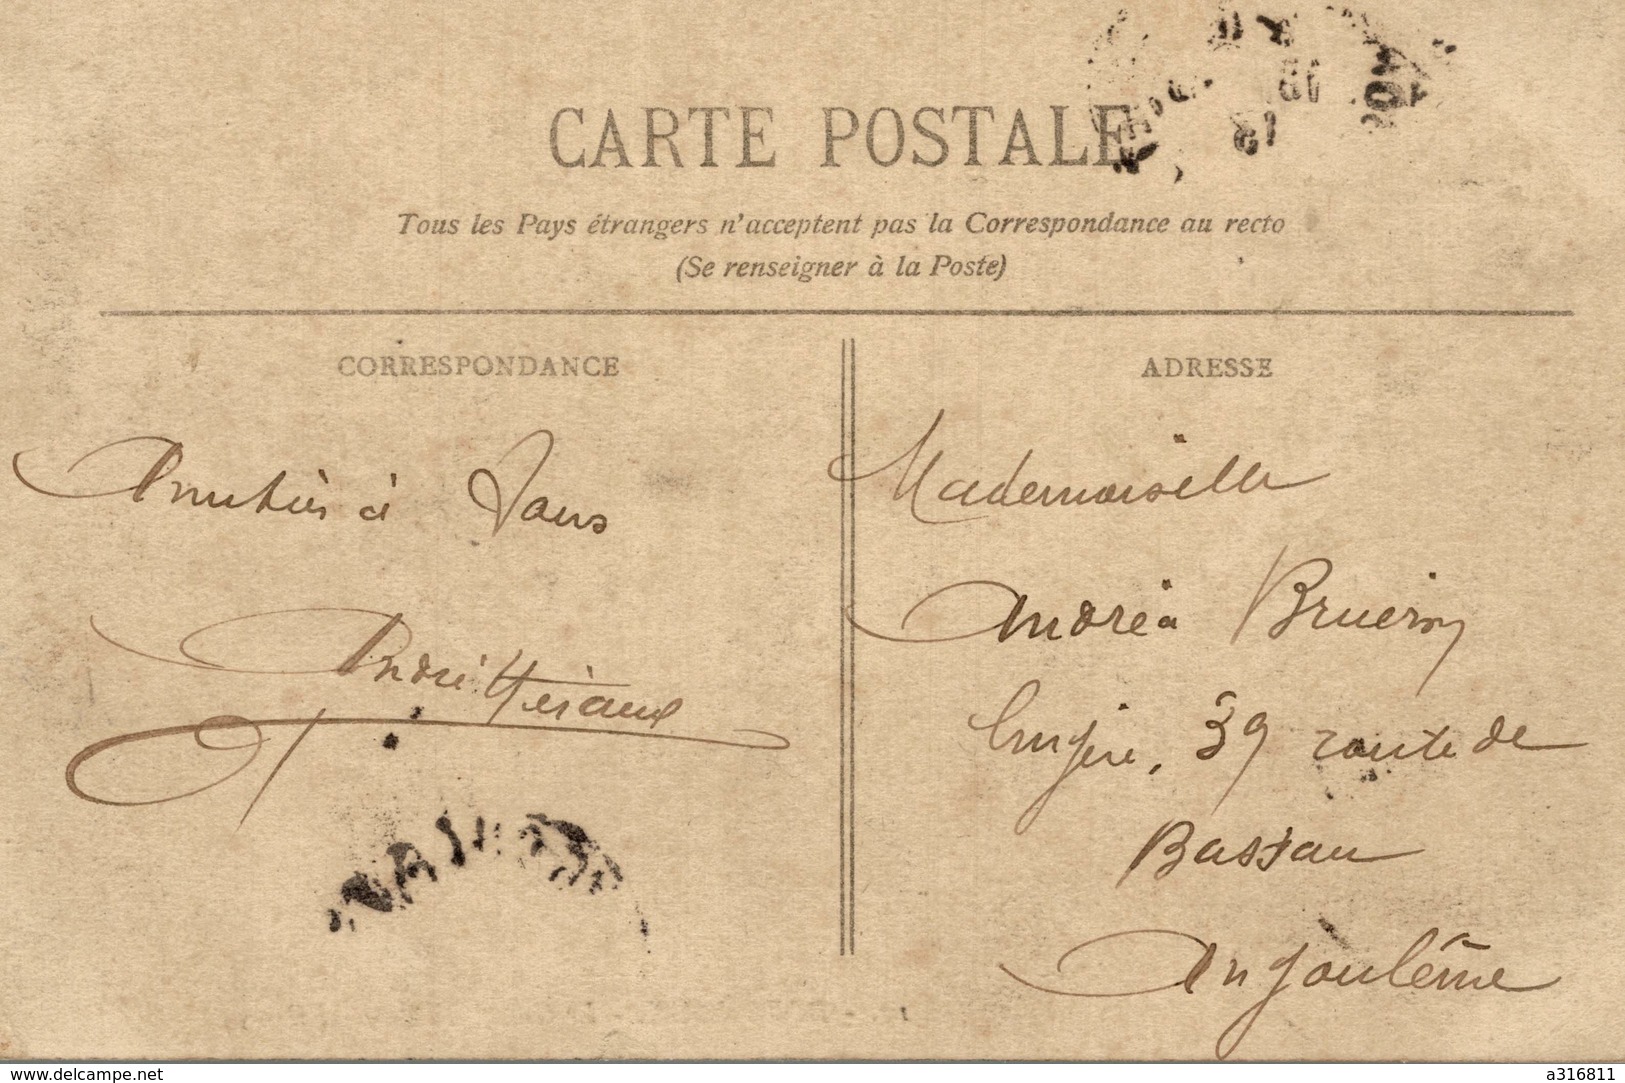 CARTE POSTALE
Tous les Pays étrangers n'acceptent pas la Correspondance au recto
(Se renseigner à la Poste)
CORRESPONDANCE
ADRESSE
à Tous
André
Mademoiselle
Andréa
39 route de
Bassau
Angoulême
www.delcampe.net
a316811